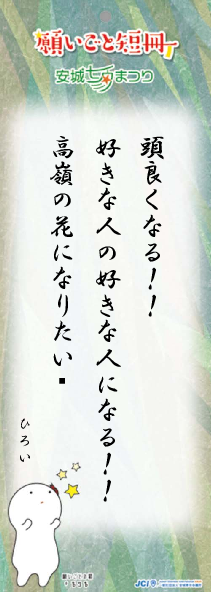 願いごと短冊
安城七夕まつり
頭良くなる!!
好きな人の好きな人になる!!
高嶺の花になりたい
ひろい
JCI